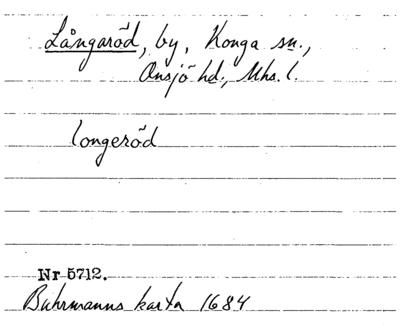 Långaröd, by, Konga sn.,
Onsjö hd., Mhs. l.
longeröd
Nr 5712.
Buhrmanns karta 1684